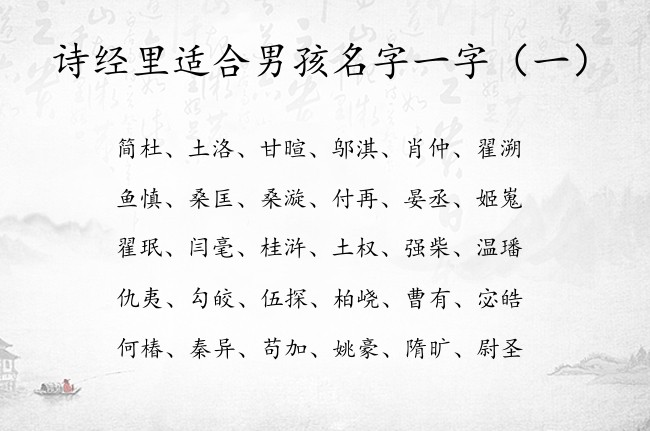 诗经里适合男孩名字一字（一）
简杜、土洛、甘暄、邬淇、肖仲、翟溯
鱼慎、桑匡、桑漩、付再、晏丞、姬嵬
翟珉、闫毫、桂浒、土权、强柴、温璠
仇夷、勾皎、伍探、柏峣、曹有、宓皓
何椿、秦异、苟加、姚豪、隋旷、尉圣